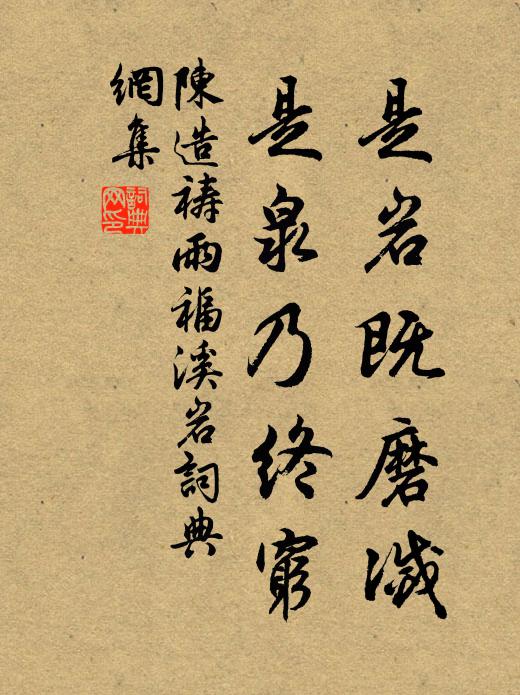 是岩既磨滅
是泉乃終窮
陳造禱雨福溪岩詞典
網集
詞典网印